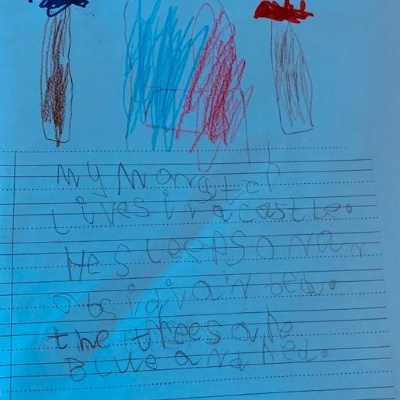 My
Lives in a castle.
He sleeps on an
bed.
the thees are
Blue and red.